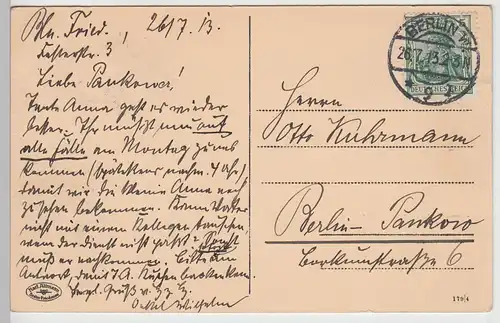 Bln. Fried., 26/7. 13.
3
Liebe Pankower!
Tante Anna geht es wieder
besser. Ihr müßt nun auf
alle Fälle am Montag zu uns
kommen (spätestens nachm. 4 Uhr)
damit wir die Anna noch
zu sehen bekommen. Kann Vater
nicht mit einem Kollegen tauschen,
wenn der Dienst nicht paßt? Sonst
muß er nachkommen. Bitte um
Antwort, damit T. A. Kuchen backen kann.
Herzl. Gruß
Onkel Wilhelm
BERLIN
26.7.13.
DEUTSCHES REICH
Herrn
Otto Kuhrmann
Berlin-Pankow
Borkumstraße 6
179/4